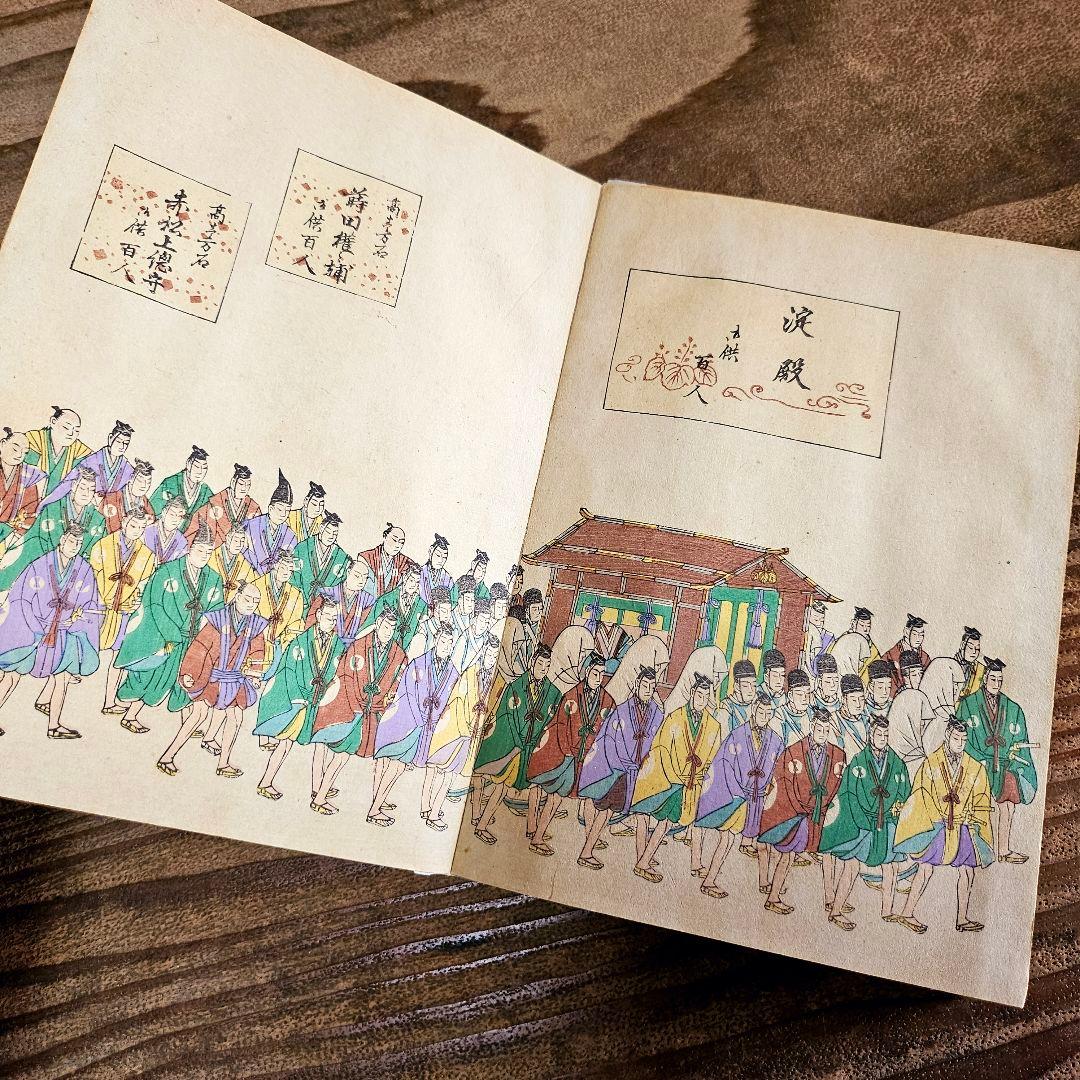 淀
殿
御供
百人
高三万石
蒔田権補
御供百人
高三万石
赤松上總守
御供百人